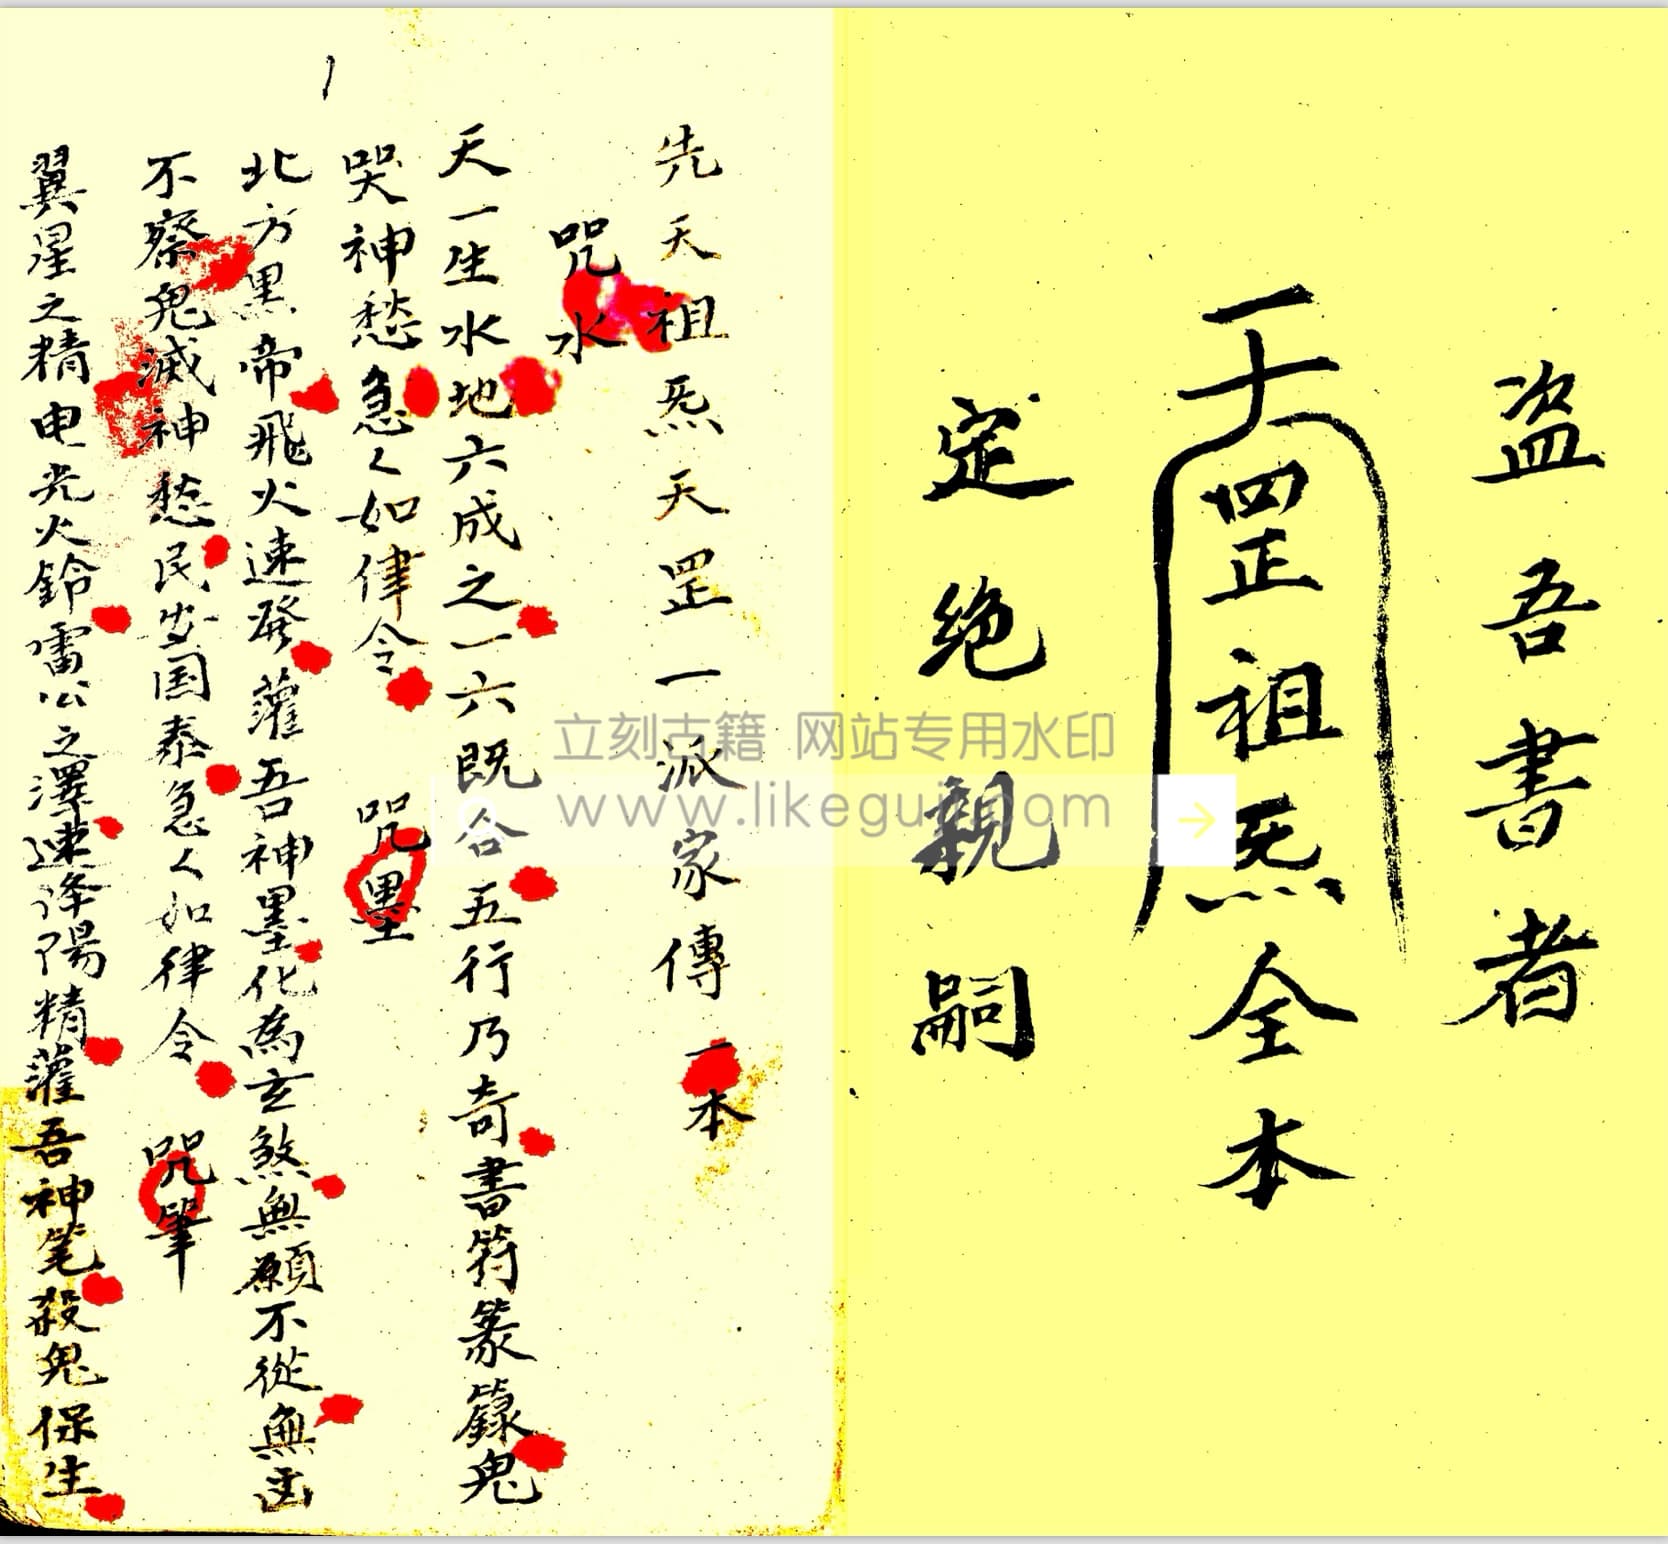 盗吾書者
一十罡祖炁全本
定絶親嗣
先天祖炁天罡一派家傳一本
咒水
天一生水地六成之一六既合五行乃奇書符篆籙鬼
哭神愁急々如律令 咒墨
北方黑帝飛火速發灌吾神墨化為玄煞無願不從無凶
不察鬼滅神愁民安国泰急々如律令 咒筆
翼星之精电光火鈴雷公之澤速降陽精灌吾神笔殺鬼保生
立刻古籍 网站专用水印
www.likeguji.com